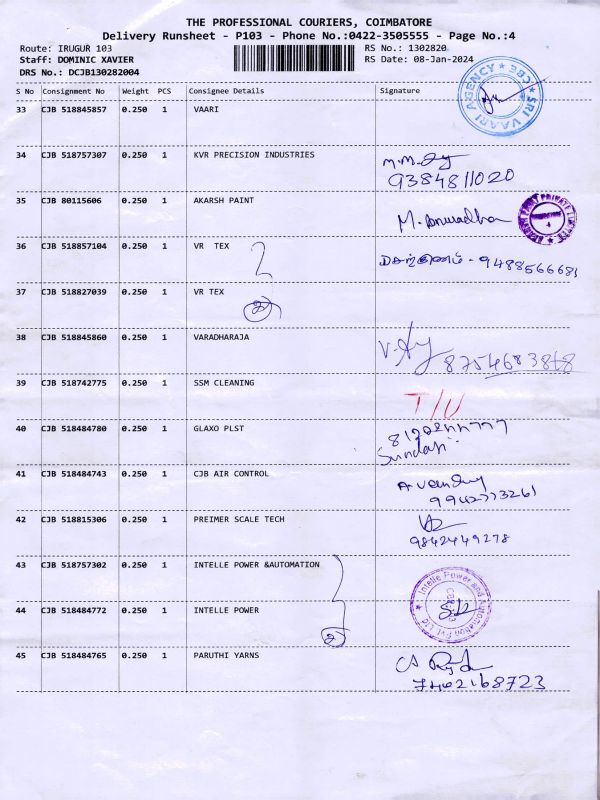 THE PROFESSIONAL COURIERS, COIMBATORE
Delivery Runsheet - P103 - Phone No.:0422-3505555 - Page No.:4
Route: IRUGUR 103 RS No.: 1302820
Staff: DOMINIC XAVIER RS Date: 08-Jan-2024
DRS No.: DCJB130282004
S No Consignment No Weight PCS Consignee Details Signature
33 CJB 518845857 0.250 1 VAARI
SRI VAARI AGENCY CBE
34 CJB 518757307 0.250 1 KVR PRECISION INDUSTRIES
9384811020
35 CJB 80115606 0.250 1 AKARSH PAINT M. Anuradha
36 CJB 518857104 0.250 1 VR TEX 9488566681
37 CJB 518827039 0.250 1 VR TEX
2
38 CJB 518845860 0.250 1 VARADHARAJA
39 CJB 518742775 0.250 1 SSM CLEANING
T/U
40 CJB 518484780 0.250 1 GLAXO PLST
41 CJB 518484743 0.250 1 CJB AIR CONTROL
9942773261
42 CJB 518815306 0.250 1 PREIMER SCALE TECH
9842449278
43 CJB 518757302 0.250 1 INTELLE POWER &AUTOMATION
Intelle Power and Automation Pvt Ltd
44 CJB 518484772 0.250 1 INTELLE POWER
2
45 CJB 518484765 0.250 1 PARUTHI YARNS
7402168723